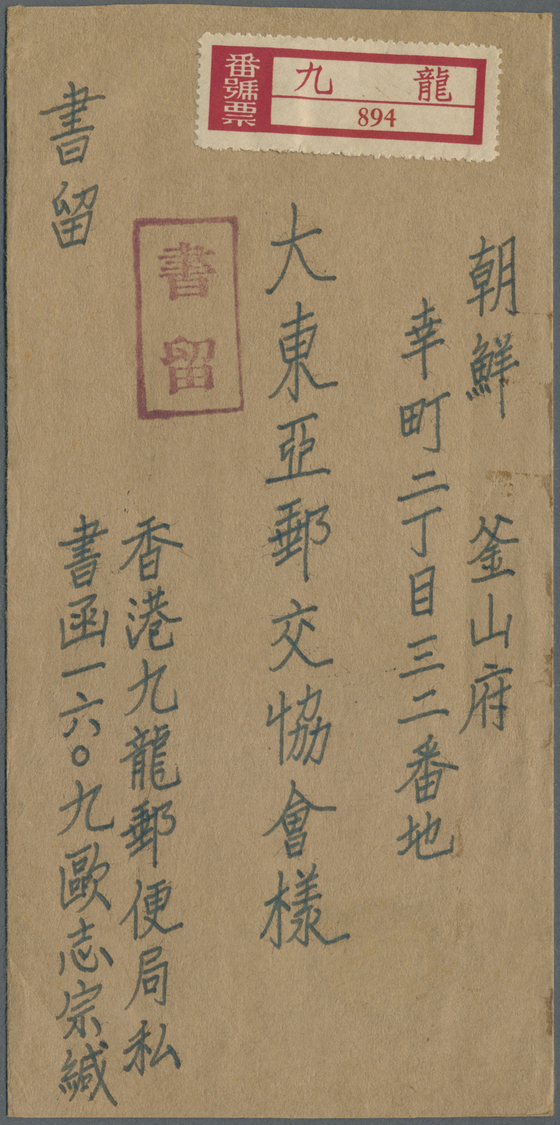 番號票
九龍
894
朝鮮 釜山府
幸町二丁目三二番地
大東亞郵交協會様
書留
書留
香港九龍郵便局私
書函一六〇九歐志宗緘